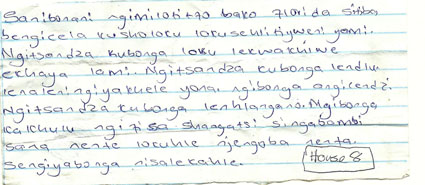 Sanibonani ngimilotitfo bako Florida sitiba
bengicela kusho loku lokusehlitiyweni yami.
Ngitsandza kubonga loku lekwakhiwe
ekhaya lami. Ngitsandza kubonga lendlu
lenaleningiyakuele yona, ngibonga angicendzi.
Ngitsandza kubonga lenhlangano. Ngibonga
kakhulu ngitisa shangatsi singabambi
sana nente lokuhle njengoba nenta.
Sengiyabonga nisalekahle.
House 8